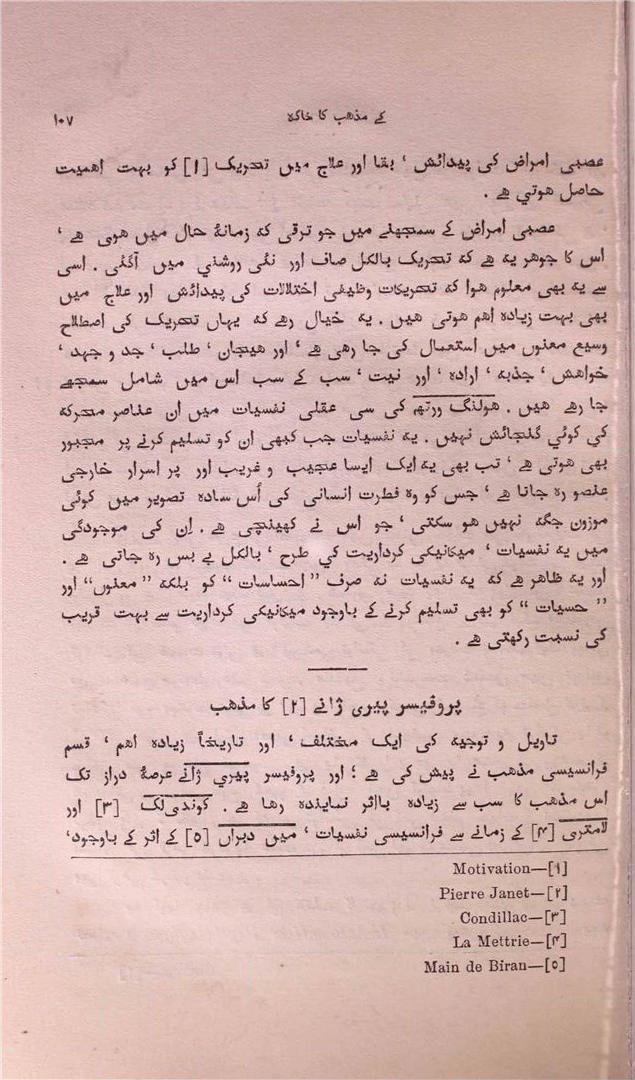 کے مذهب کا خاکه ۱۰۷
عصبی امراض کی پیدائش ، بقا اور علاج میں تحریک [۱] کو بہت اهمیت
حاصل هوتی هے .
عصبی امراض کے سمجھنے میں جو ترقی که زمانۂ حال میں هوی هے ،
اس کا جوهر یه هے که تحریک بالکل صاف اور نئی روشنی میں آگئی . اسی
سے یه بھی معلوم هوا که تحریکات وظیفی اختلالات کی پیدائش اور علاج میں
بھی بہت زیاده اهم هوتی هیں . یه خیال رهے که یہاں تحریک کی اصطلاح
وسیع معنوں میں استعمال کی جا رهی هے ، اور هیجان ، طلب ، جد و جہد ،
خواهش ، جذبه ، اراده ، اور نیت ، سب کے سب اس میں شامل سمجھے
جا رهے هیں . هولنگ ورتھ کی سی عقلی نفسیات میں ان عناصر متحرکه
کی کوئی گنجائش نہیں . یه نفسیات جب کبھی ان کو تسلیم کرنے پر مجبور
بھی هوتی هے ، تب بھی یه ایک ایسا عجیب و غریب اور پر اسرار خارجی
عنصر ره جاتا هے ، جس کو وه فطرت انسانی کی اُس ساده تصویر میں کوئی
موزوں جگه نہیں هو سکتی ، جو اس نے کھینچی هے . اِن کی موجودگی
میں یه نفسیات ، میکانیکی کرداریت کی طرح ، بالکل بے بس ره جاتی هے .
اور یه ظاهر هے که یه نفسیات نه صرف ”احساسات“ کو بلکه ”معنوں“ اور
”حسیات“ کو بھی تسلیم کرنے کے باوجود میکانیکی کرداریت سے بہت قریب
کی نسبت رکھتی هے .
پروفیسر پیری ژانے [۲] کا مذهب
تاویل و توجیه کی ایک مختلف ، اور تاریخاً زیاده اهم ، قسم
فرانسیسی مذهب نے پیش کی هے ؛ اور پروفیسر پیری ژانے عرصۂ دراز تک
اس مذهب کا سب سے زیاده بااثر نماینده رها هے . کوندی لک [۳] اور
لامتری [۴] کے زمانے سے فرانسیسی نفسیات ، میں دبراں [۵] کے اثر کے باوجود،
Motivation—[۱]
Pierre Janet—[۲]
Condillac—[۳]
La Mettrie—[۴]
Main de Biran—[۵]